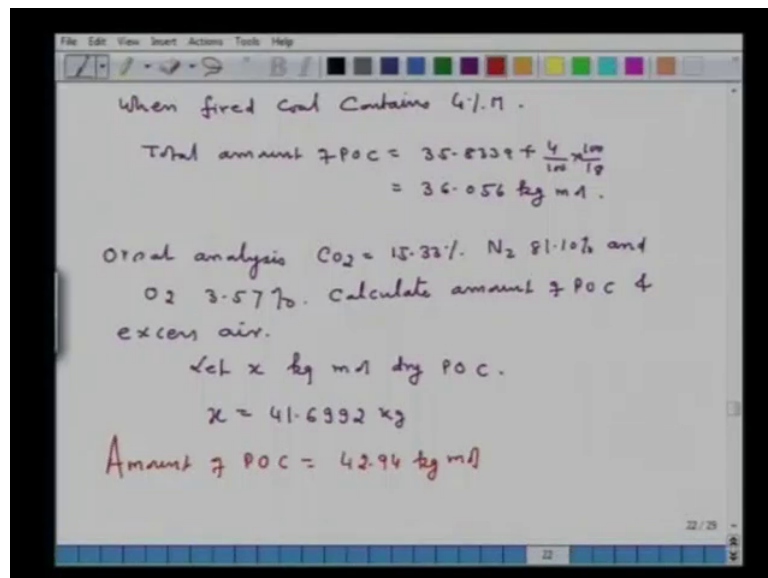 File Edit View Insert Actions Tools Help
When fired Coal Contains 4% M.
Total amount of POC = 35.8339 + 4/100 × 100/18
= 36.056 kg mol.
Orsat analysis CO2 = 15.33%. N2 81.10% and
O2 3.57%. Calculate amount of POC &
excess air.
Let x kg mol dry POC.
x = 41.6992 kg
Amount of POC = 42.94 kg mol
22/29
22